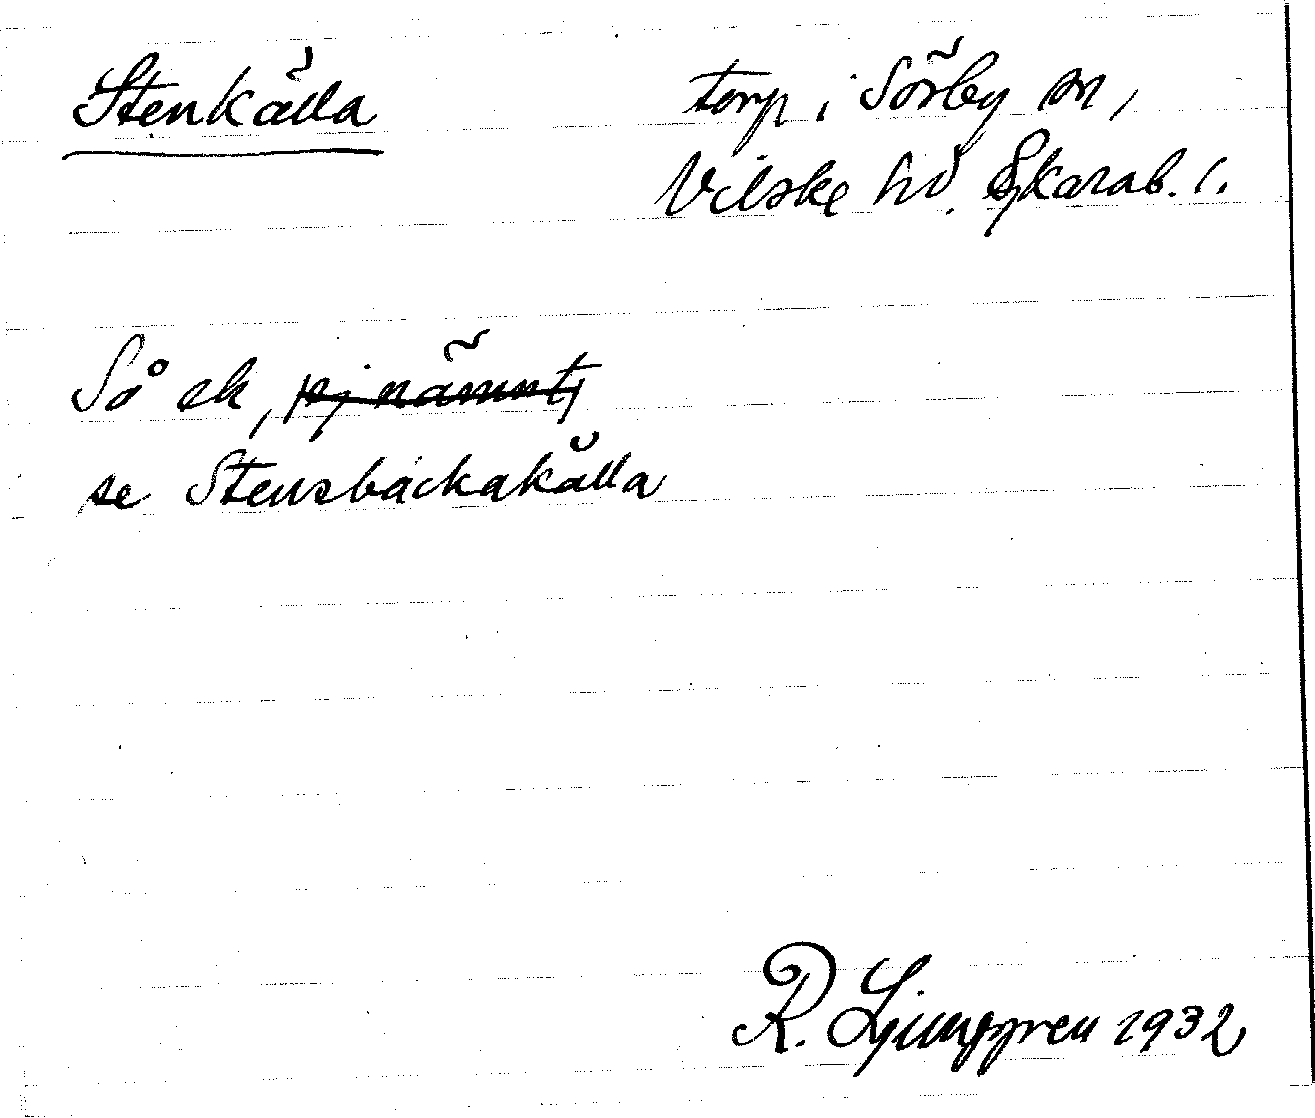 Stenkälla
torp i Sörby sn,
Vilske hd. Skarab. l.
Så ek, ej nämnt,
se Stensbäckakälla
R. Ljunggren 1932